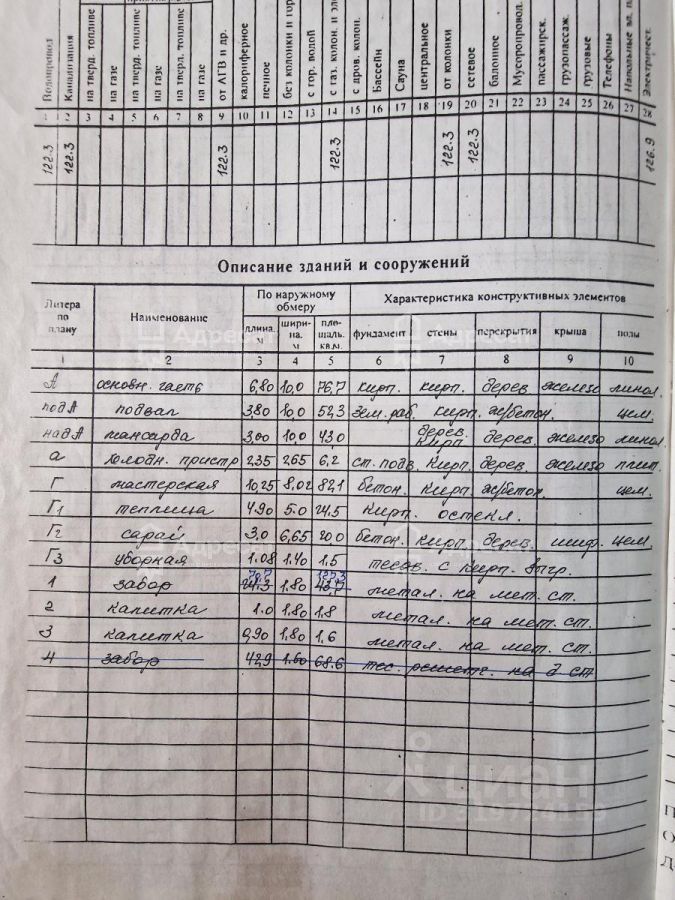 Водопровод Канализация на тверд. топливе на газе на тверд. топливе на газе на тверд. топливе на газе от АГВ и др. калориферное печное без колонки и гор. с гор. водой с газ. колон. с дров. колон. Бассейн Сауна центральное от колонки сетевое балонное Мусоропровод. пассажирск. грузопассаж. грузовые Телефоны Напольные эл. Электричест.
1 2 3 4 5 6 7 8 9 10 11 12 13 14 15 16 17 18 19 20 21 22 23 24 25 26 27 28
122.3 122.3 122.3 122.3 122.3 122.3 126.9
Описание зданий и сооружений
Литера по плану Наименование По наружному обмеру Характеристика конструктивных элементов
длина. м шири-на. м пло-щаль. кв.м. фундамент стены перекрытия крыша полы
1 2 3 4 5 6 7 8 9 10
А основн. часть 6,80 10,0 76,7 кирп. кирп. дерев железо линол.
подА подвал 3,80 10,0 52,3 зем. раб. кирп. ж/бетон. цем.
надА мансарда 3,00 10,0 43,0 дерев. кирп. дерев. железо линол
а холодн. пристр 2,35 2,65 6,2 ст. подв. кирп. дерев железо плит.
Г мастерская 10,25 8,02 82,1 бетон. кирп. ж/бетон. цем.
Г1 теплица 4,90 5.0 24.5 кирп. остекл.
Г2 сарай 3,0 6,65 20.0 бетон. кирп. дерев. шиф. цем.
Г3 уборная 1.08 1.40 1.5 тесов. с кирп. выгр.
1 забор 24.3 1.80 43,7 метал. на мет. ст.
2 калитка 1.0 1.80 1.8 метал. на мет. ст.
3 калитка 0,90 1,80 1,6 метал. на мет. ст.
4 забор 42,9 1.60 68.6 тес. решетч. на д ст
Адресат
ЦИАН